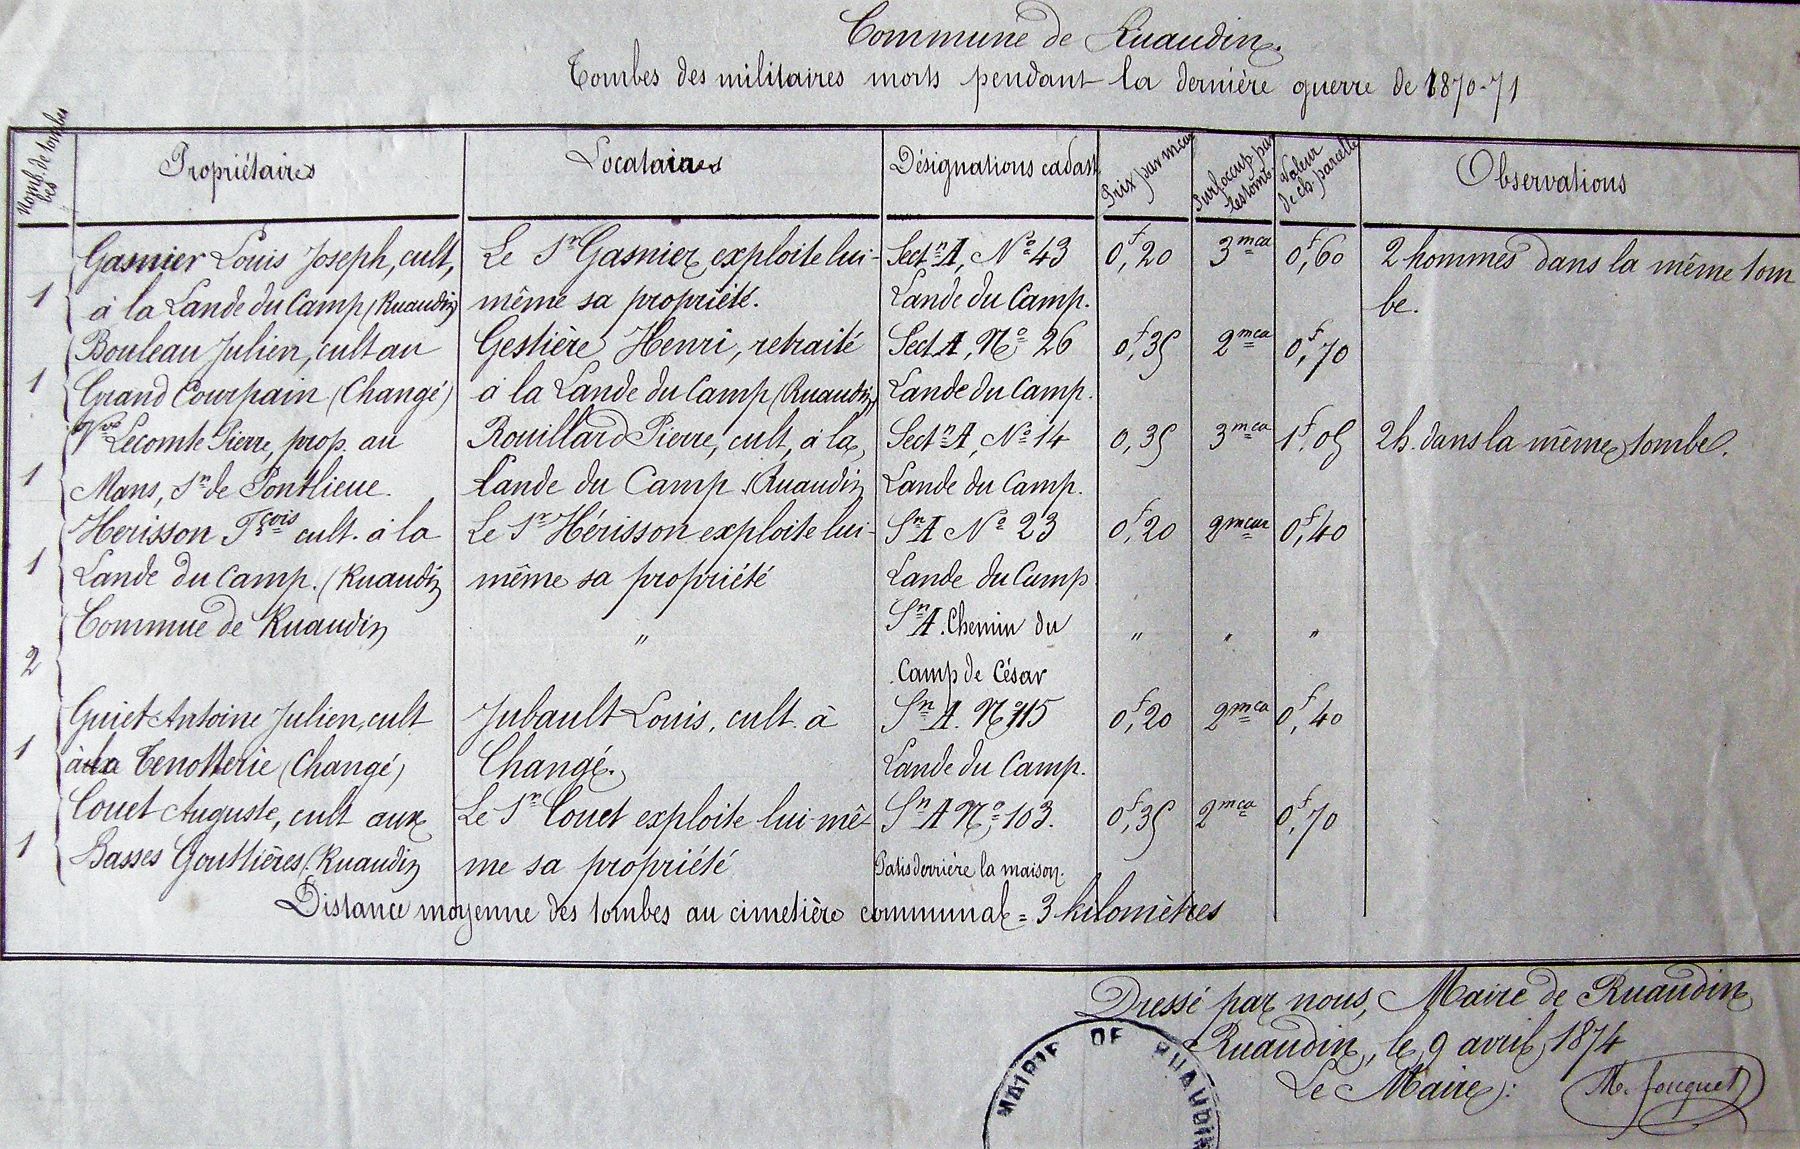 Commune de Ruaudin.
Tombes des militaires morts pendant la dernière guerre de 1870-71
Nomb. de tombes Propriétaires Locataires Désignations cadast Prix par mca Surf occup par les tombes Valeur de ch. parcelle Observations
Gasnier Louis Joseph, cult, Le Sr Gasnier exploite lui- Sectn A, No 43 0f,20 3mca 0f,60 2 hommes dans la même tom
1 à la Lande du Camp (Ruaudin) même sa propriété. Lande du Camp. be.
Bouleau Julien, cult au Gestière Henri, retraité Sect A, No 26 0f,35 2mca 0f,70
1 Grand Courpain (Changé) à la Lande du Camp (Ruaudin) Lande du Camp.
Vve Lecomte Pierre, prop. au Rouillard Pierre, cult, à la Sectn A, No 14 0,35 3mca 1f,05 2 h. dans la même tombe.
1 Mans, Sn de Pontlieue. Lande du Camp (Ruaudin Lande du Camp.
Herisson Fçois cult. à la Le Sr Hérisson exploite lui- Sn A No 23 0f,20 2mcar 0f,40
1 Lande du Camp. (Ruaudin même sa propriété Lande du Camp
Commue de Ruaudin " Sn A. Chemin du " " "
2 Camp de César
Guiet Antoine Julien, cult Jubault Louis, cult. à Sn A. No 115 0f,20 2mca 0f,40
1 à la Tenotterie (Changé) Changé. Lande du Camp.
Couet Auguste, cult aux Le Sr Couet exploite lui-mê- Sn A No 103. 0f,35 2mca 0f,70
1 Basses Gouttières (Ruaudin me sa propriété Patis derrière la maison.
Distance moyenne des tombes au cimetière communal = 3 kilomètres
Dressé par nous, Maire de Ruaudin
Ruaudin, le 9 avril 1874
Le Maire: M. Fouquet
MAIRIE DE RUAUDIN